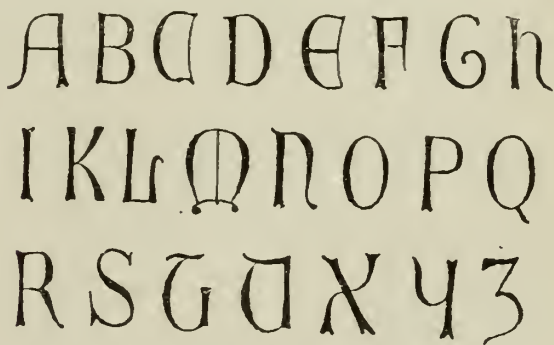 ABCDEFGh
IKLMNOPQ
RSTUXYZ